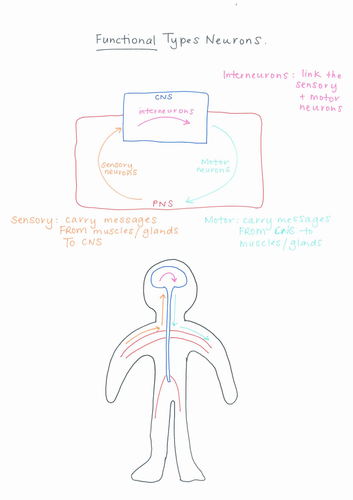 Functional Types Neurons.
Interneurons: link the
sensory
+ motor
neurons
CNS
interneurons
Sensory
neurons
Motor
neurons
PNS
Sensory: carry messages
FROM muscles/glands
TO CNS
Motor: carry messages
FROM CNS to
muscles/glands